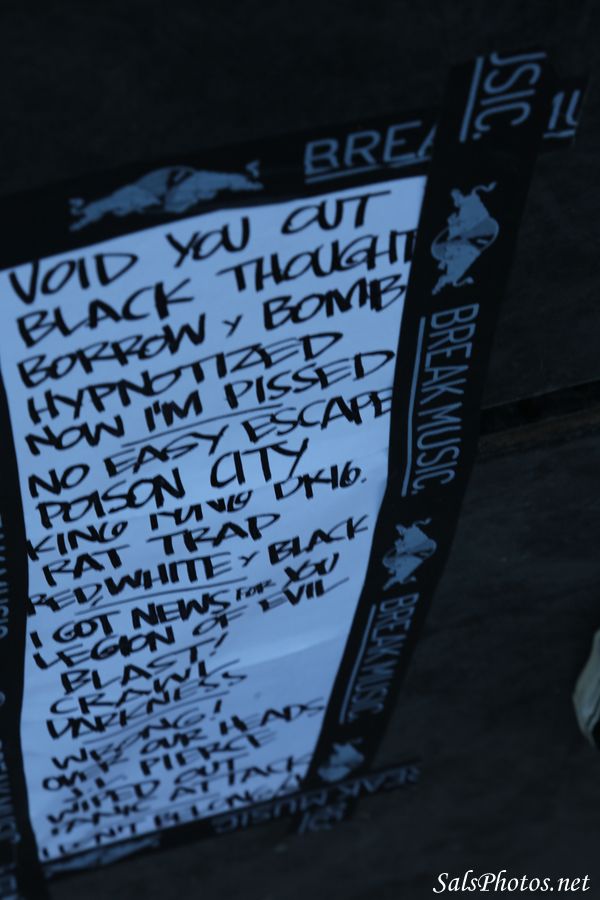 JSIC.
BREA
VOID YOU OUT
BLACK THOUGHT
BORROW Y BOMB
HYPNOTIZED
NOW I'M PISSED
NO EASY ESCAPE
POISON CITY
KING DK16.
RAT TRAP
RED, WHITE Y BLACK
I GOT NEWS FOR YOU
LEGION OF EVIL
BLAST!
CRAWL
DARKNESS
WRONG!
OVER OUR HEADS
PIERCE
WIPED OUT
PANIC ATTACK
BREAK MUSIC.
BREAK MUSIC.
REAK MUSIC
SalsPhotos.net